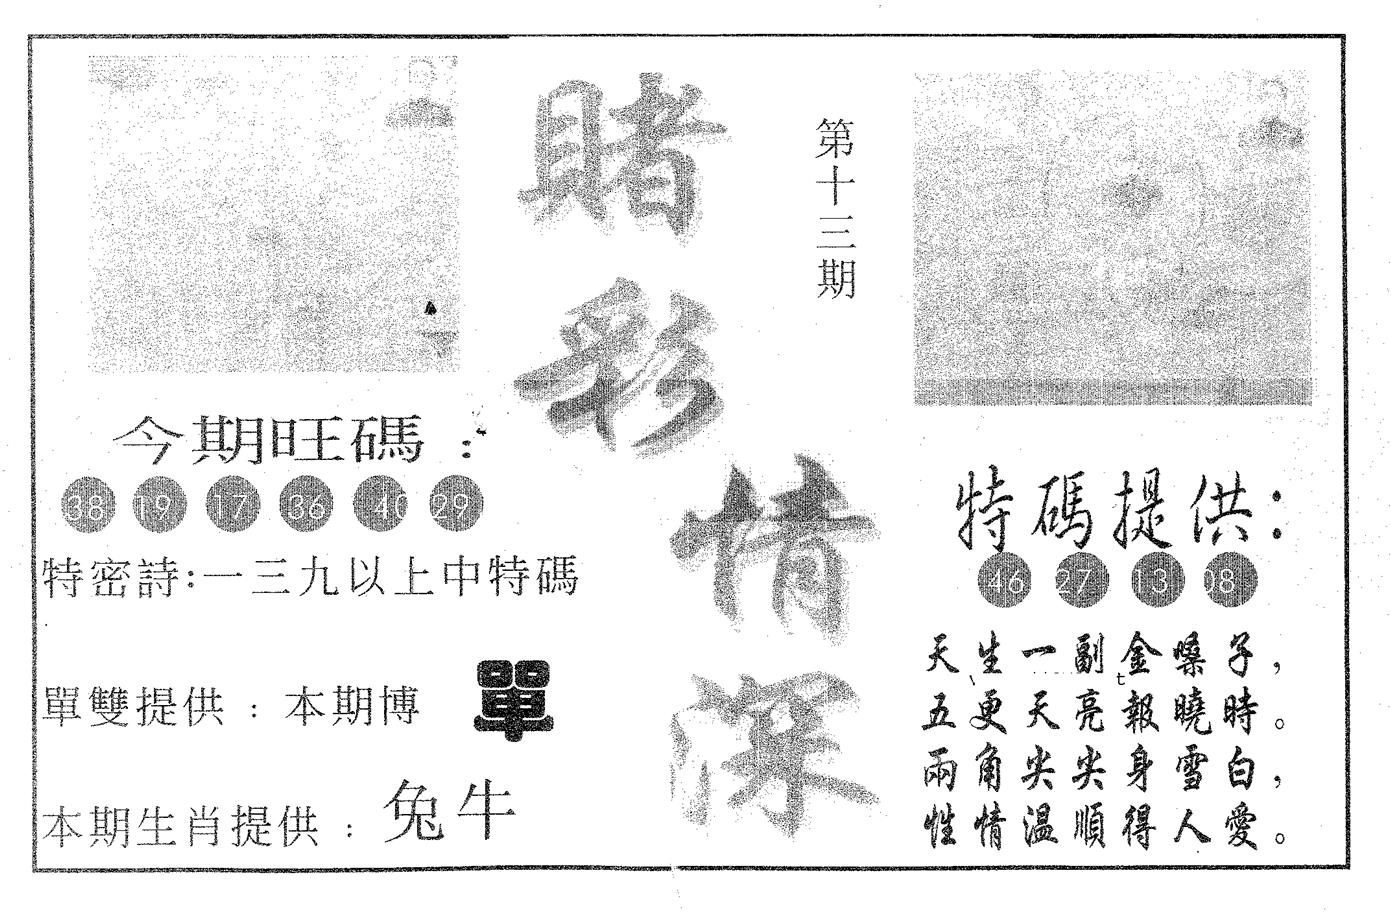 賭彩情深
第十三期
今期旺碼：
38 19 17 36 40 29
特密詩:一三九以上中特碼
單雙提供：本期博 單
本期生肖提供：兔牛
特碼提供：
46 27 13 08
天生一副金嗓子，
五更天亮報曉時。
兩角尖尖身雪白，
性情溫順得人愛。